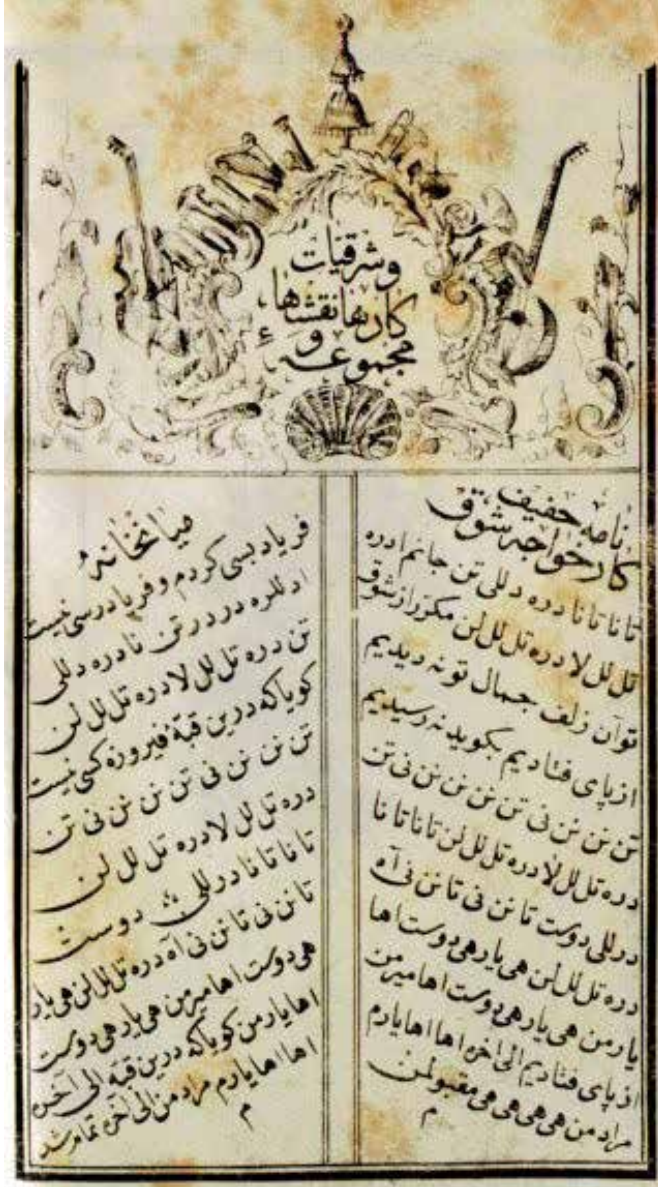 وشرقیات
کارها نقشها
و
مجموعه ء
نامه خفیف
کار خواجه شوق
تا نا تا نا دره دللی تن جانم ادره
تلل لل لا دره تل لل لن مکرر از شوق
توان زلف جمال تو نه دیدیم
از پای فتادیم بکوید نه رسیدیم
تن نن نن نی تن نن نن نن نی تن
دره تل لل لا دره تل لل لن تا نا تا نا
در للی دوست تا نن نی تا نن نی آه
دره تل لل لن هی یار هی دوست اها
یار من هی یار هی دوست اها میر من
از پای فتادیم الی اخره اها اها یارم
مراد من هی هی هی هی مقبولمن
م
میانخانه
فریاد بسی کردم و فریاد رسی نیست
اد للره در در تن نا دره دللی
تن دره تل لل لا دره تل لل لن
کویا که درین قبۀ فیروزه کسی نیست
تن نن نن نی تن نن نن نن نی تن
دره تل لل لا دره تل لل لن
تا نا تا نا در للی دوست
تا نن نی تا نن نی آه دره تل لل لن هی یار
هی دوست اها میر من هی یار هی دوست
اها یار من کویا که درین قبه الی آخره
اها اها یارم مراد من الی آخره تمام شد
م